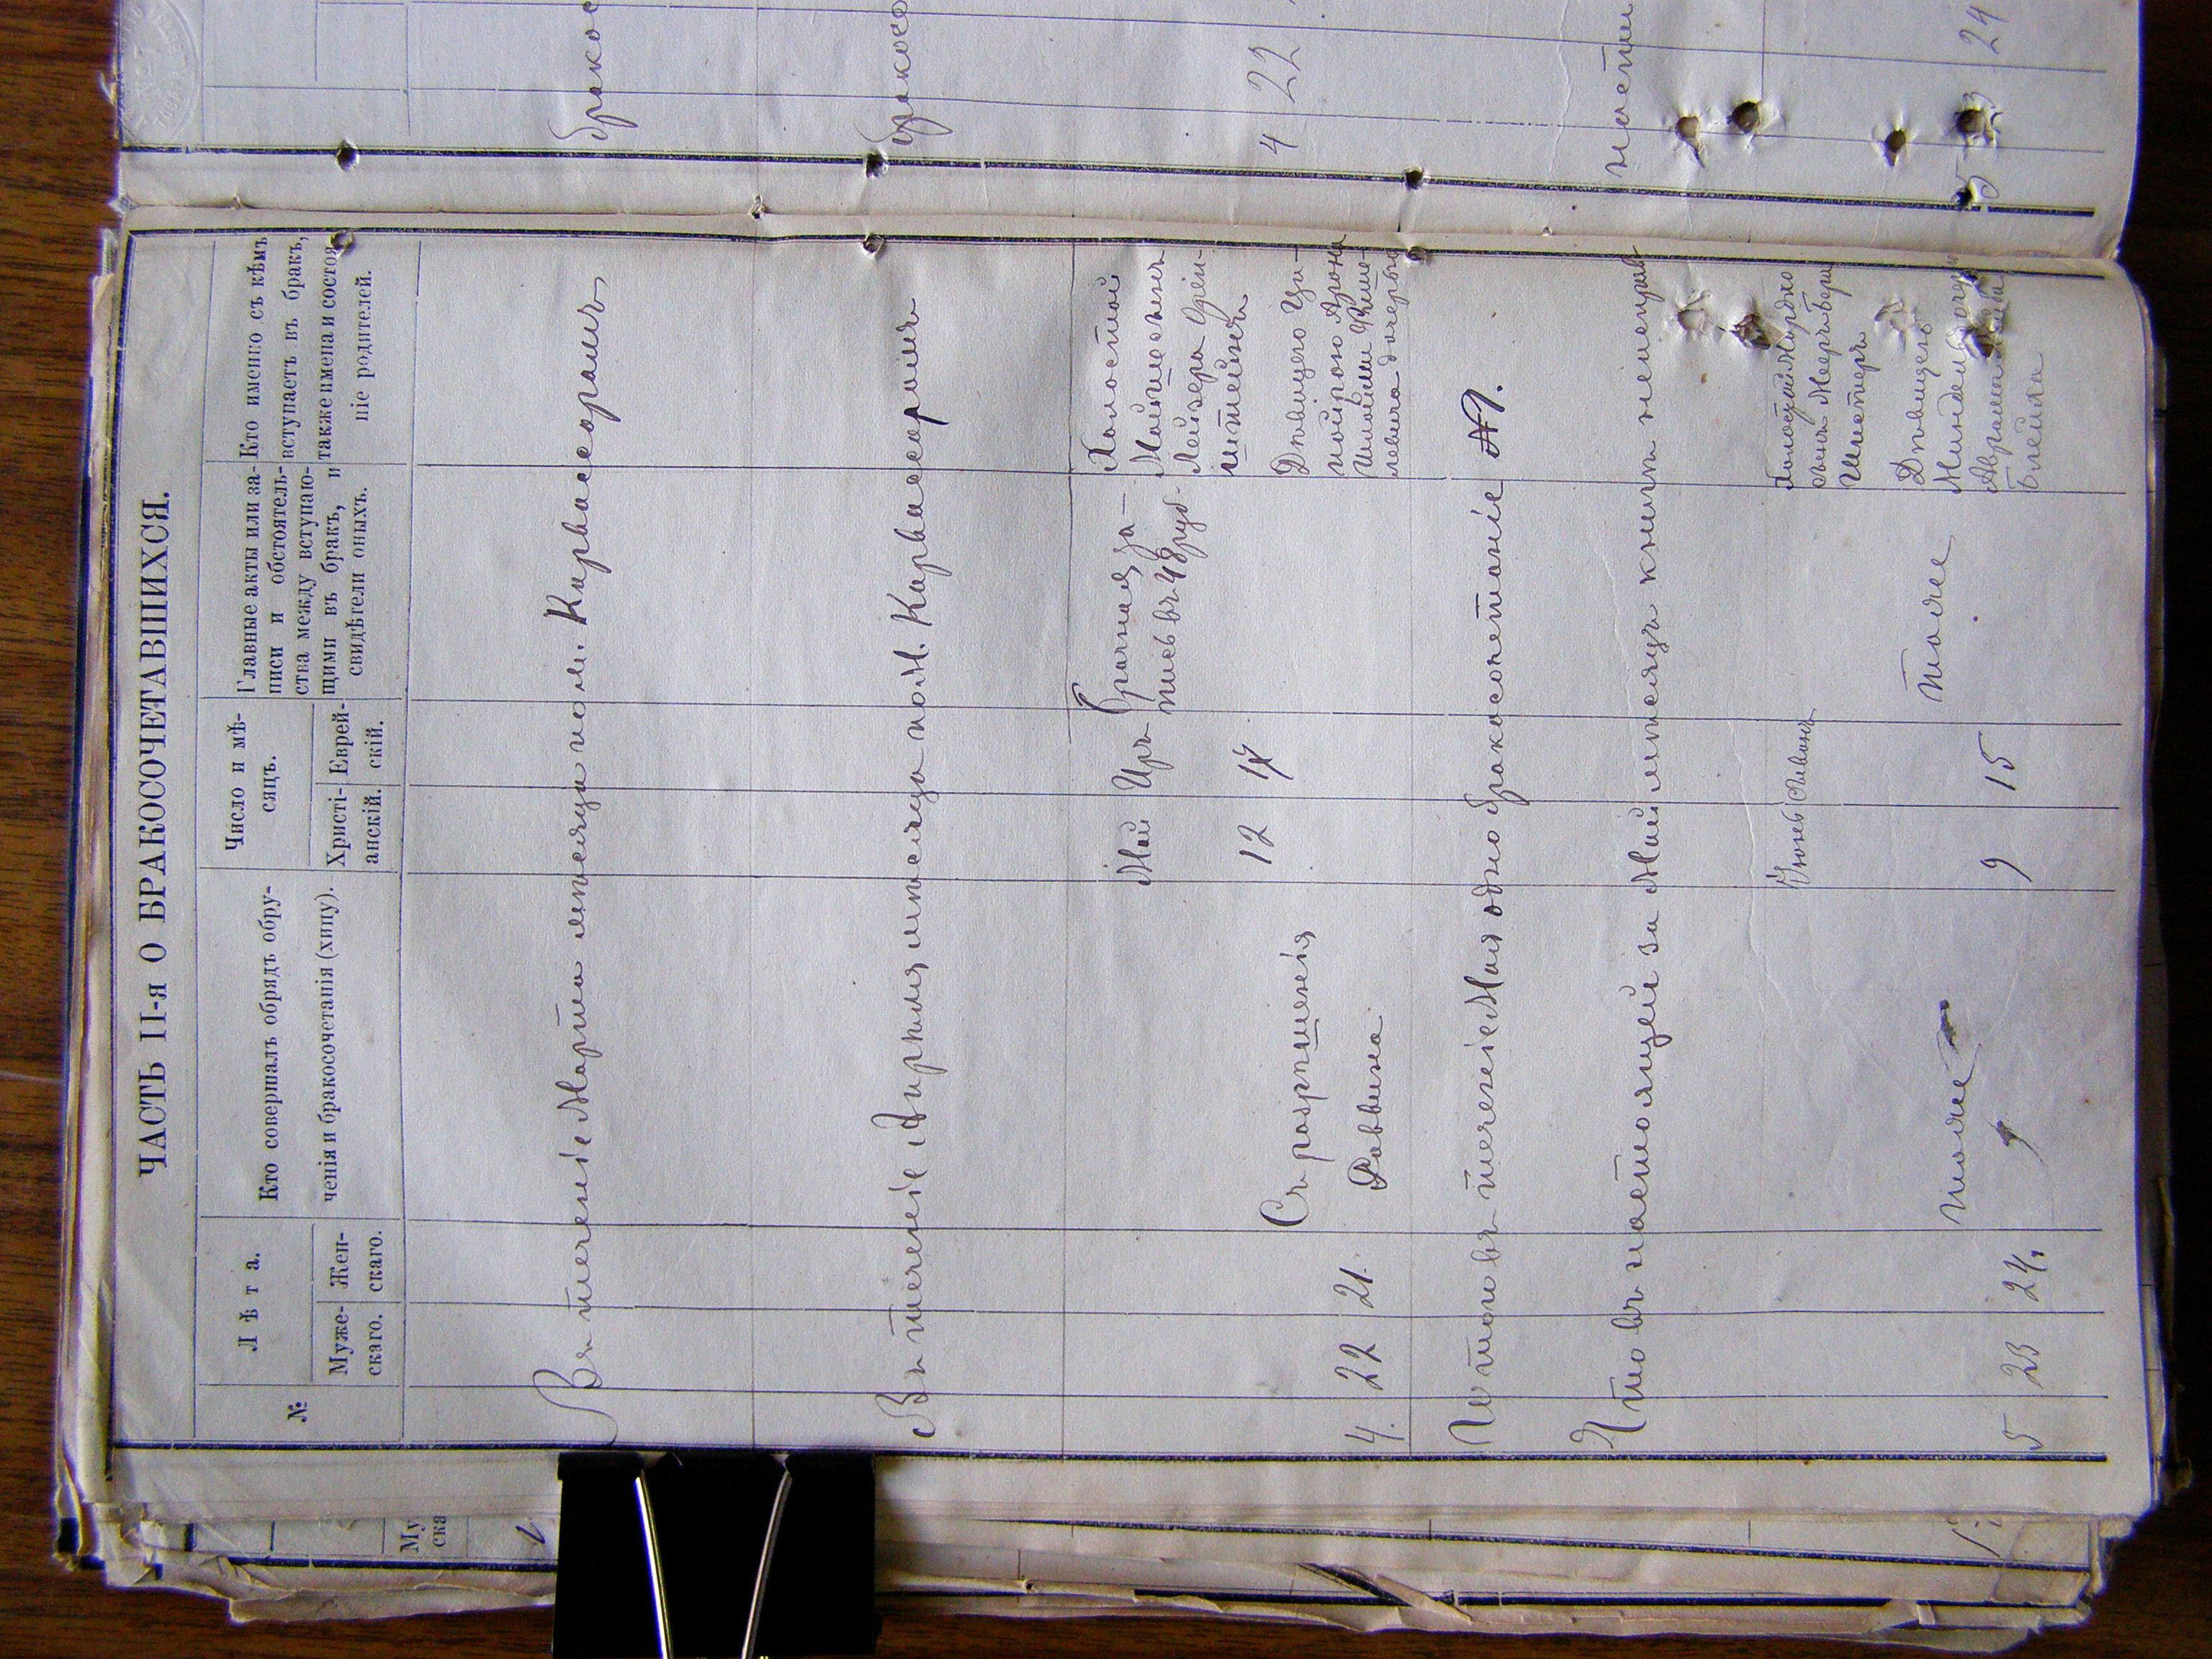 ЧАСТЬ II-я О БРАКОСОЧЕТАВШИХСЯ.
№
Лѣта.
Муже-
скаго.
Жен-
скаго.
Кто совершалъ обрядъ обру-
ченія и бракосочетанія (хипу).
Число и мѣ-
сяцъ.
Христі-
анскій.
Еврей-
скій.
Главные акты или за-
писи и обстоятель-
ства между вступаю-
щими въ бракъ, и
свидѣтели оныхъ.
Кто именно съ кѣмъ
вступаетъ въ бракъ,
также имена и состоя
ніе родителей.
Въ теченіе Марта мѣсяца по м. Карвасорамъ
Въ теченіе Апрѣля мѣсяца по м. Карвасорамъ
4.
22
21.
Съ разрѣшенія
Раввина
Май
12
Иръ
17
Брачная за-
пись въ 48 руб
Холостой
Мойше сынъ
Лейзера
штейнъ
Дѣвицею
Арона
дочерью
Итого въ теченіе Мая одно бракосочетаніе №1.
Что въ настоящей за Май мѣсяцъ книгѣ
5
23
24.
тоже
Іюнь
9
Сиванъ
15
тоже
Холостой Мордко
сынъ Мееръ Бера
Шнстеръ
Дѣвицею
Миндель дочер
бракос
бракосо
4
22
5
23
24
Му
ска